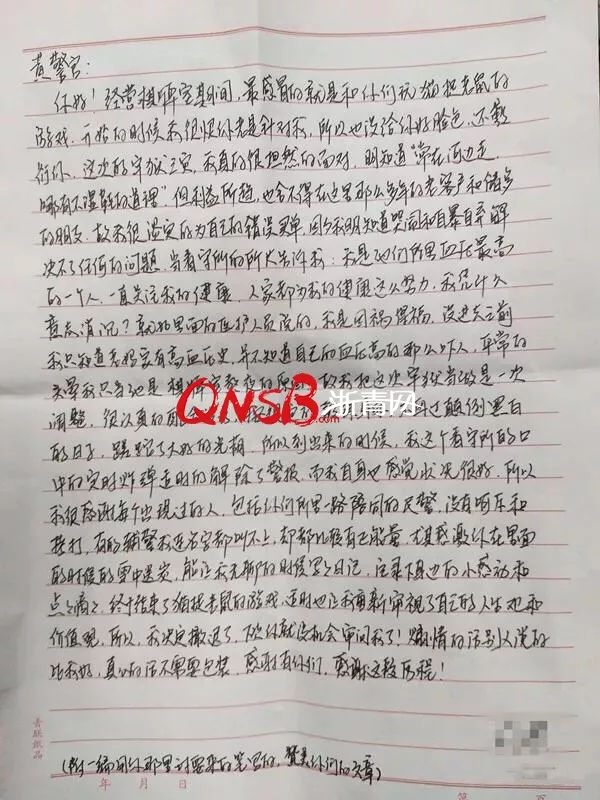 黄警官：
你好！经营棋牌室期间，最感冒的就是和你们玩猫捉老鼠的
游戏，开始的时候我很恨你老是针对我，所以也没给你好脸色，还敷
衍你，这次的牢狱之灾，我真的很坦然的面对，明知道“常在河边走，
哪有不湿鞋的道理”但利益所趋，也舍不得在这里那么多年的老客户和诸多
的朋友，故我很诚实的为自己的错误买单，因为我明知道哭闹和自暴自弃解
决不了任何的问题，当看守所的所长告诉我：我是他们所里血压最高
的一个人，一直关注我的健康，人家都为我的健康这么努力，我凭什么
意志消沉？就如里面的医护人员说的，我是因祸得福，没进去之前
我只知道老妈家有高血压史，并不知道自己的血压高的那么吓人，平常的
头晕我只当她是棋牌室熬夜的原因，故我把这次牢狱当做是一次
调整，很认真的
过颠倒黑白
的日子，蹉跎了大好的光阴，所以到出来的时候，我这个看守所的口
中的定时炸弹走时的解除了警报，而我自身也感觉状况很好，所以
我很感谢每个出现过的人，包括你们所里一路陪同的民警，没有呵斥和
挨打，有的辅警我连名字都叫不上，却都比较有正能量，尤其感激你在里面
的时候的雪中送炭，能让我无聊的时候写写日记，记录下身边的小感动和
点点滴滴，终于结束了猫捉老鼠的游戏，这时也让我重新审视了自己的人生观和
价值观，所以，我决定撤退了，下次你就没机会审问我了！煽情的话别人说的
比我好，真心的话不需要包装，感谢有你们，感谢这段历程！
（附一编用你那里讨要来的笔写的，赞美你们的文章）
QNSB 浙青网
青联纸品
年 月 日
第 页